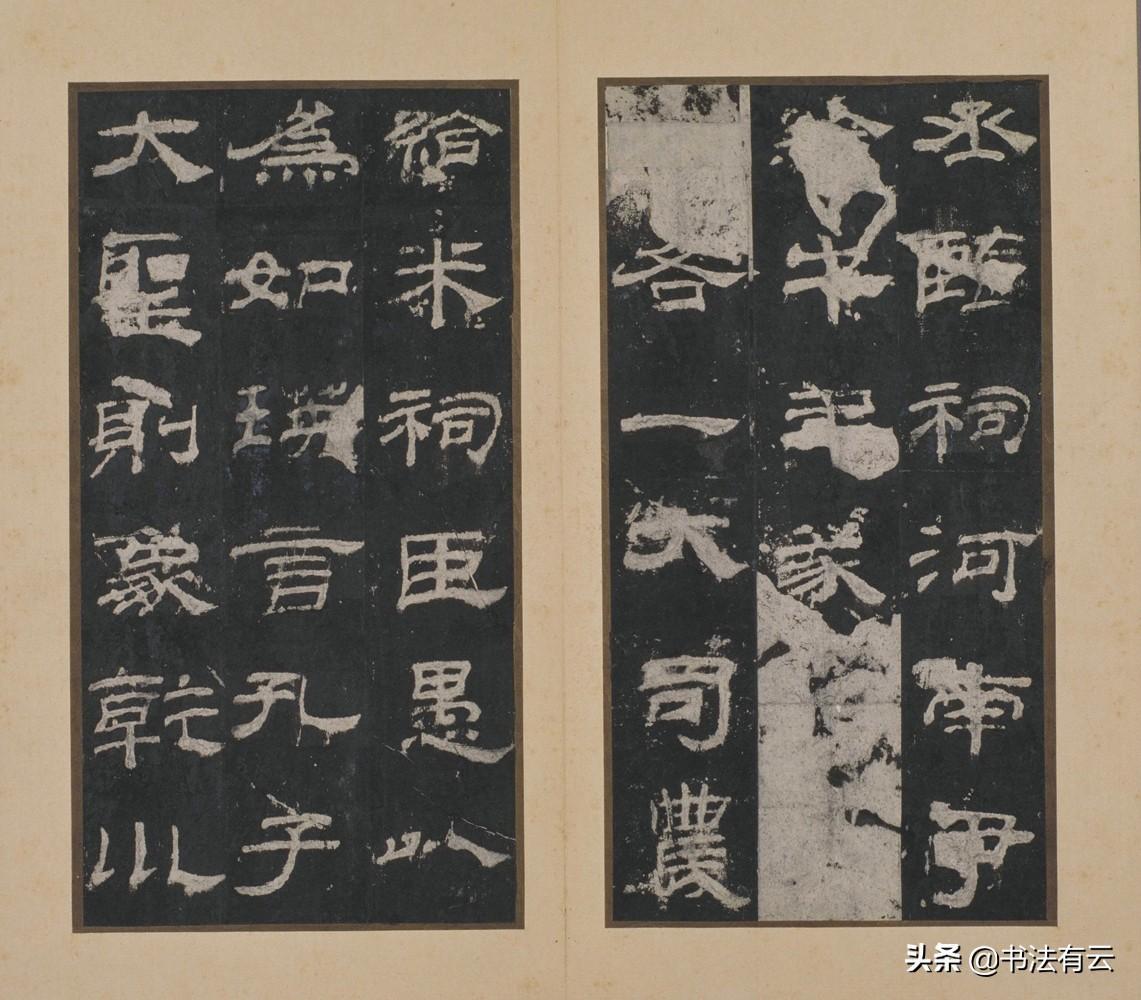 丞監祠河南尹
給牛羊豕
各一大司農
給米祠臣愚以
為如瑛言孔子
大聖則象乾川
头条 @书法有云